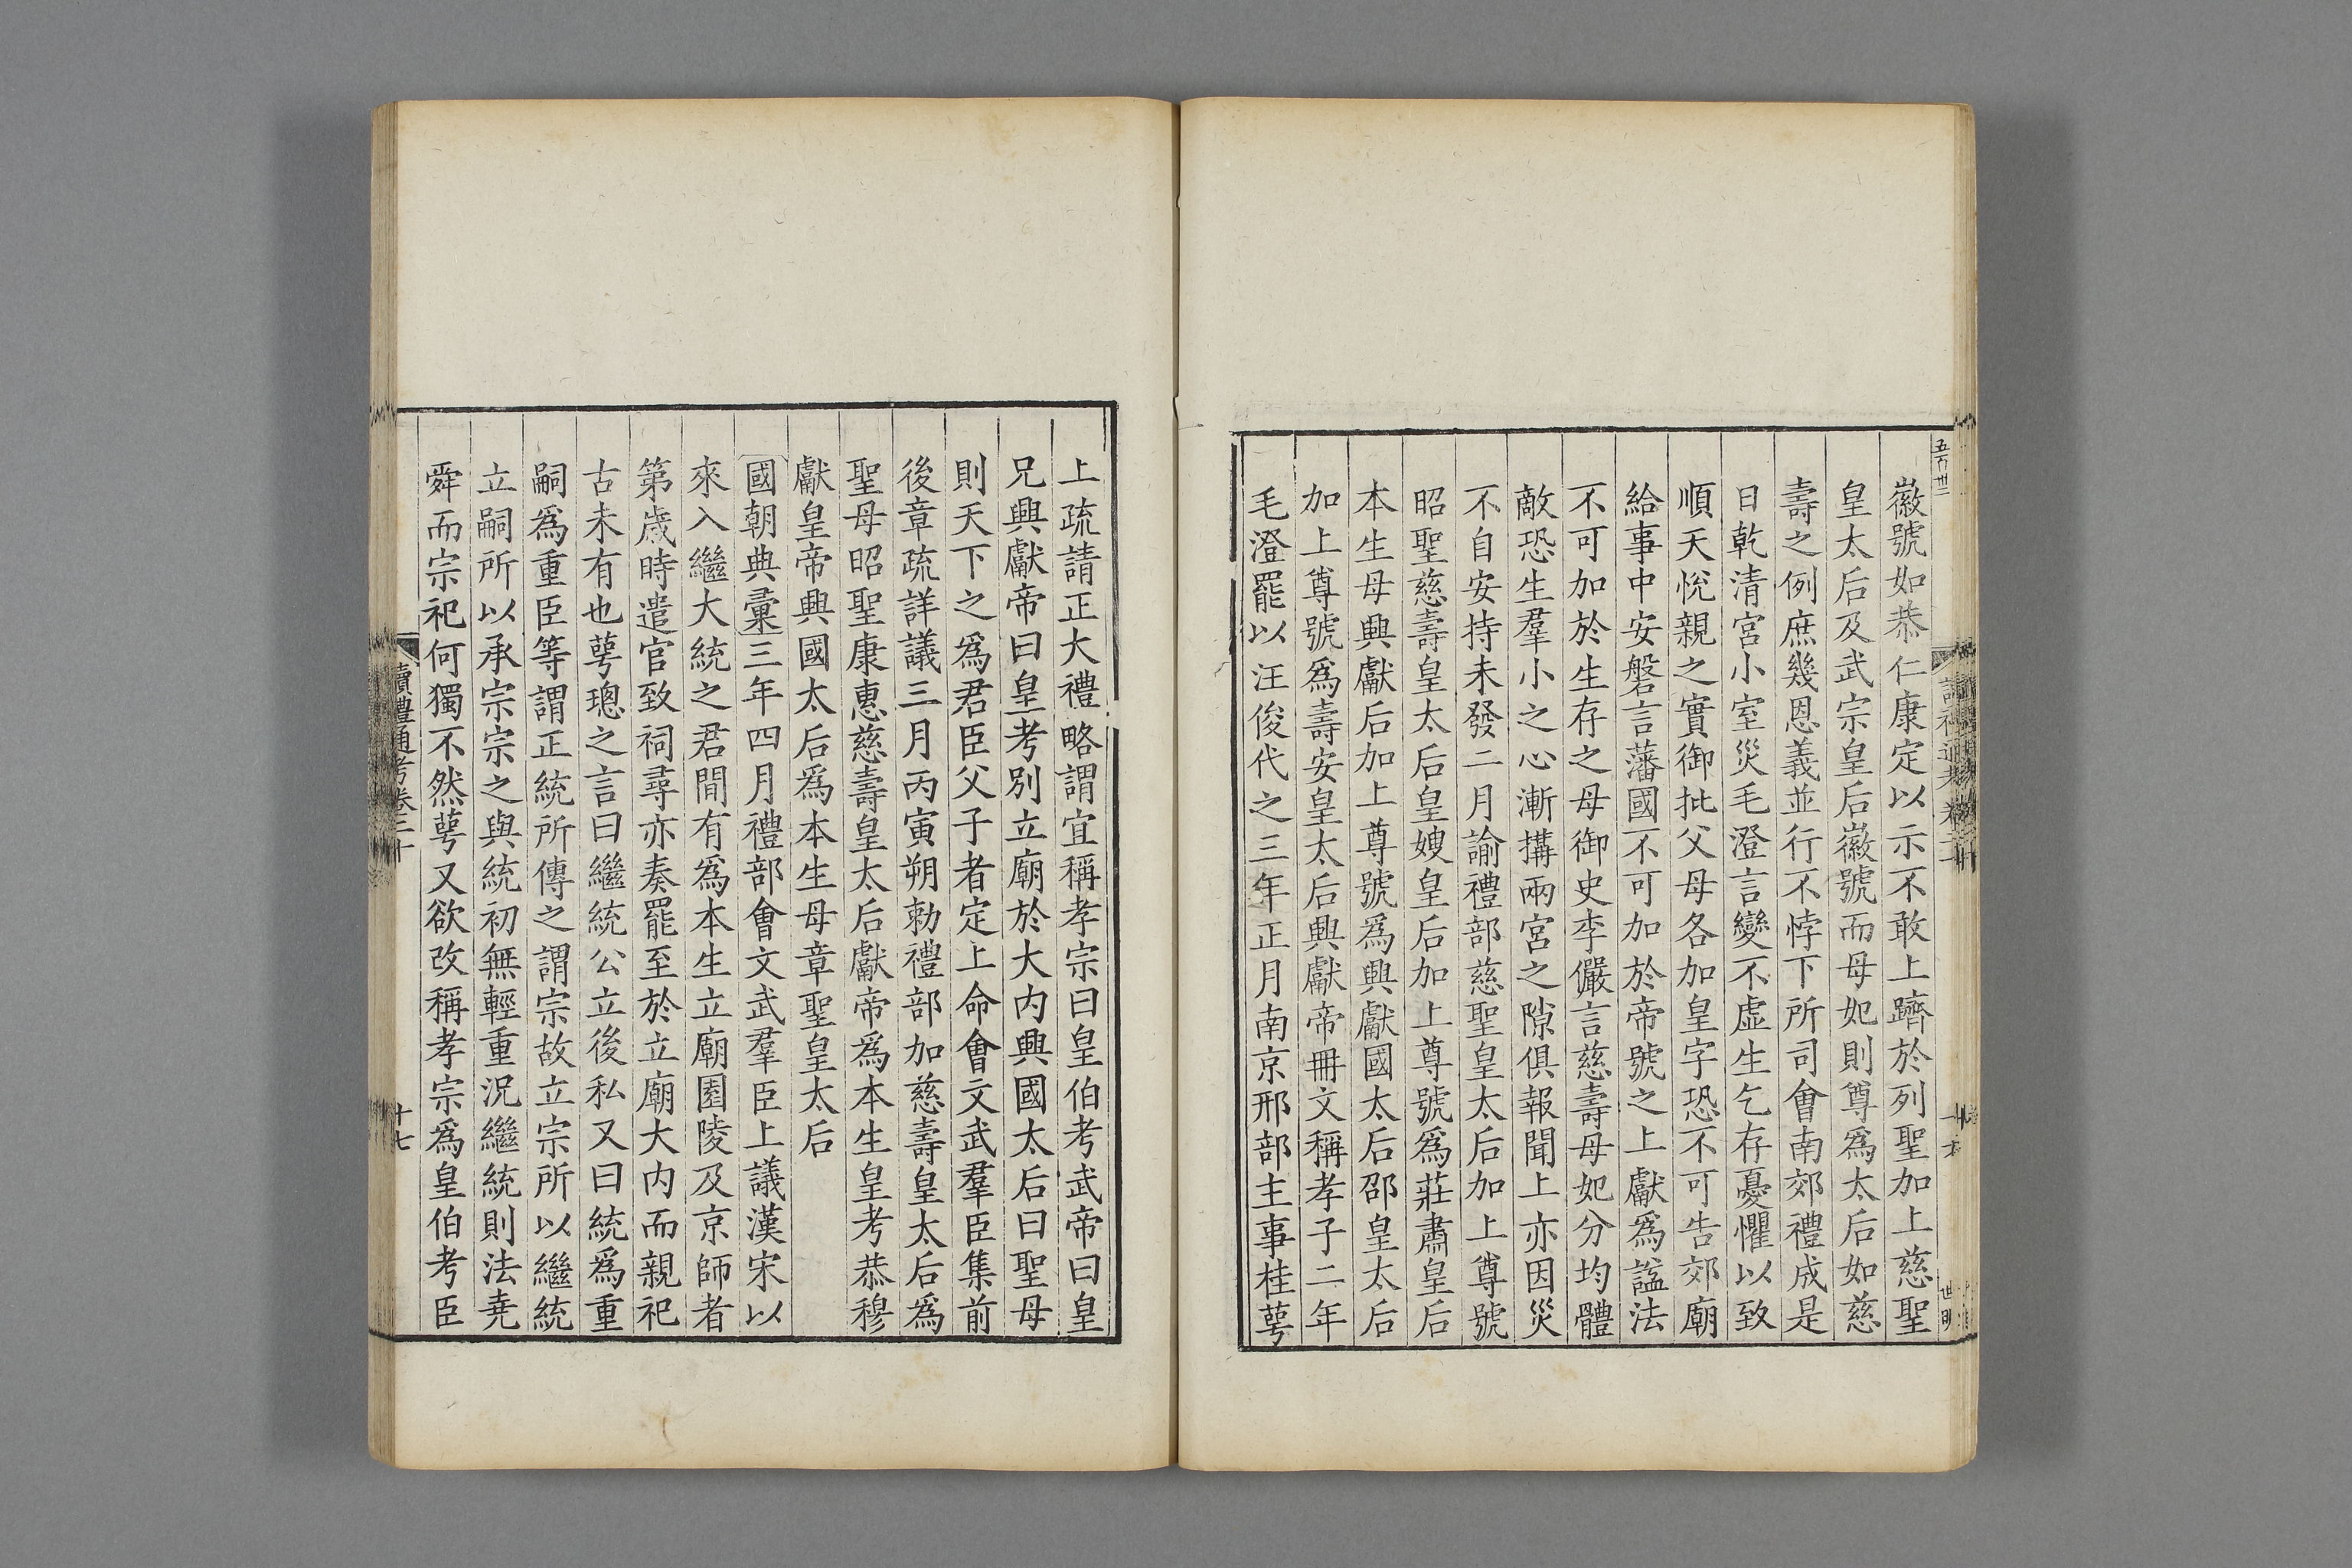 徽號如恭仁康定以示不敢上躋於列聖加上慈聖
皇太后及武宗皇后徽號而母妃則尊爲太后如慈
壽之例庶幾恩義並行不悖下所司會南郊禮成是
日乾清宮小室災毛澄言變不虛生乞存憂懼以致
順天悅親之實御批父母各加皇字恐不可告郊廟
給事中安磐言藩國不可加於帝號之上獻爲諡法
不可加於生存之母御史李儼言慈壽母妃分均體
敵恐生羣小之心漸搆兩宮之隙俱報聞上亦因災
不自安持未發二月諭禮部慈聖皇太后加上尊號
昭聖慈壽皇太后皇嫂皇后加上尊號爲莊肅皇后
本生母興獻后加上尊號爲興獻國太后邵皇太后
加上尊號爲壽安皇太后興獻帝冊文稱孝子二年
毛澄罷以汪俊代之三年正月南京邢部主事桂萼
上疏請正大禮略謂宜稱孝宗曰皇伯考武帝曰皇
兄興獻帝曰皇考別立廟於大内興國太后曰聖母
則天下之爲君臣父子者定上命會文武羣臣集前
後章疏詳議三月丙寅朔勅禮部加慈壽皇太后爲
聖母昭聖康惠慈壽皇太后獻帝爲本生皇考恭穆
獻皇帝興國太后爲本生母章聖皇太后
國朝典彙三年四月禮部會文武羣臣上議漢宋以
來入繼大統之君間有爲本生立廟園陵及京師者
第歲時遣官致祠尋亦奏罷至於立廟大内而親祀
古未有也萼璁之言曰繼統公立後私又曰統爲重
嗣爲重臣等謂正統所傳之謂宗故立宗所以繼統
立嗣所以承宗宗之與統初無輕重況繼統則法堯
舜而宗祀何獨不然萼又欲改稱孝宗爲皇伯考臣
讀禮通考卷二十
十七